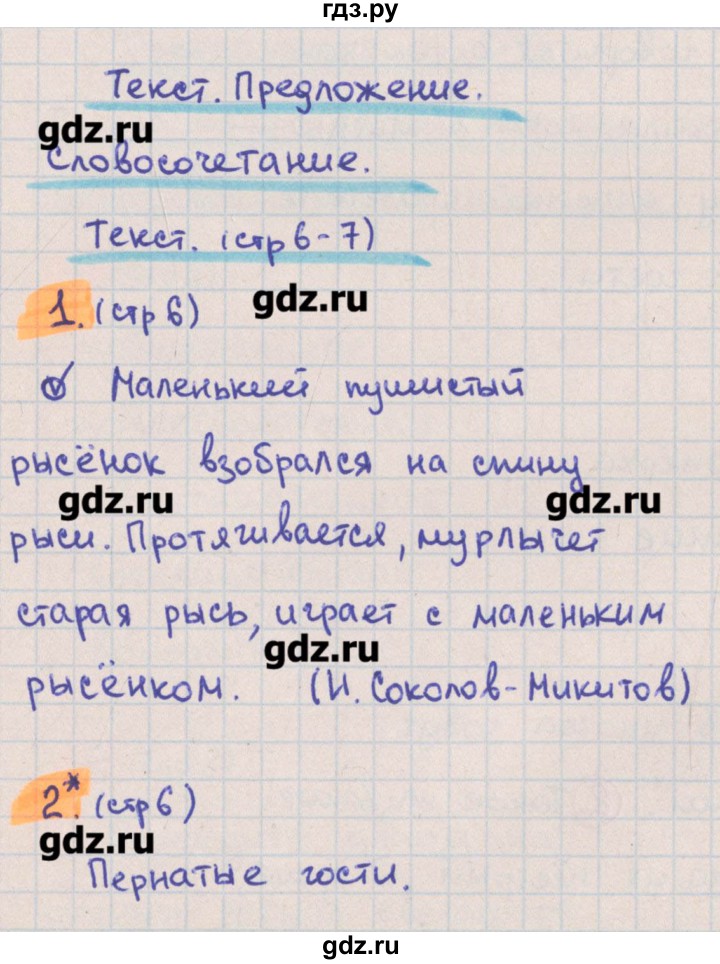 гдз.ру
Текст. Предложение.
gdz.ru
Словосочетание.
Текст. (стр 6-7)
gdz.ru
1. (стр 6)
Маленький пушистый
рысёнок взобрался на спину
gdz.ru gdz.ru
рыси. Протягивается, мурлычет
старая рысь, играет с маленьким
gdz.ru
рысёнком. (И. Соколов-Микитов)
2.* (стр 6)
gdz.ru
Пернатые гости.
gdz.ru